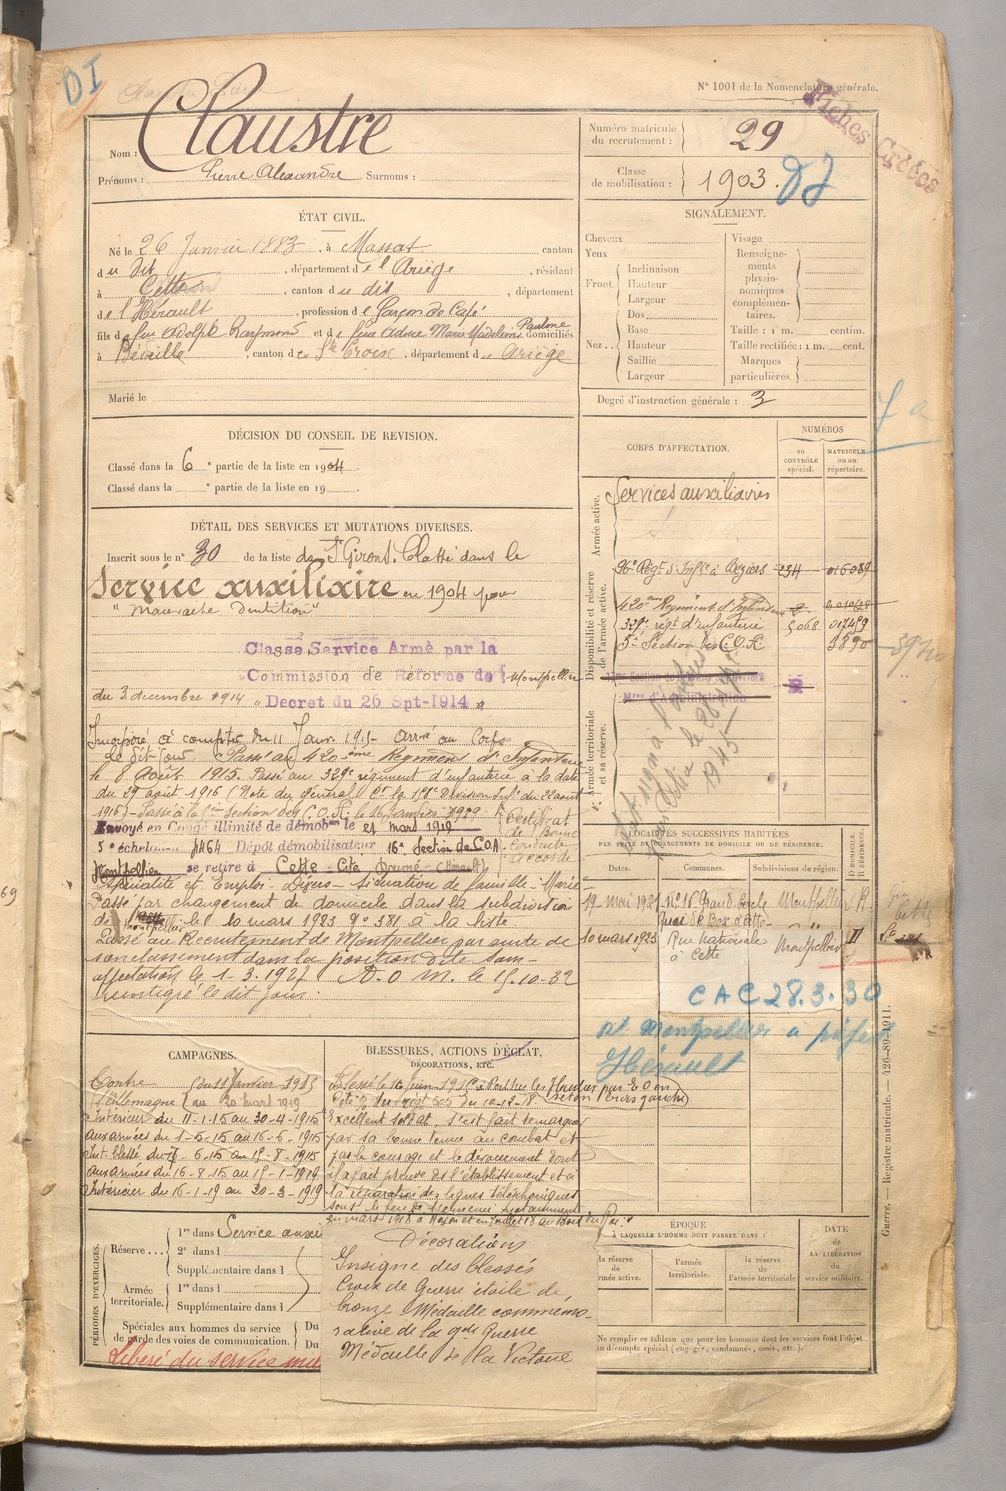 DI
N° 1001 de la Nomenclature générale.
Fiches Créées
Nom : Claustre
Prénoms : Pierre Alexandre Surnoms :
Numéro matricule du recrutement : 29
Classe de mobilisation : 1903.
ÉTAT CIVIL.
Né le 26 Janvier 1883, à Massat canton
du dit, département de l'Ariège, résidant
à Cette, canton du dit, département
de l'Hérault, profession de Garçon de Café
fils de feu Adolphe Raymond et de feue Adone Marie Madeleine Pauline domiciliés
à, canton de Ste Croix, département de Ariège
Marié le
SIGNALEMENT.
Cheveux
Yeux
Front.
Inclinaison
Hauteur
Largeur
Nez..
Dos
Base
Hauteur
Saillie
Largeur
Visage
Renseignements physionomiques complémentaires.
Taille : 1 m. centim.
Taille rectifiée : 1 m. cent.
Marques particulières.
Degré d'instruction générale : 3
DÉCISION DU CONSEIL DE REVISION.
Classé dans la 6e partie de la liste en 1904.
Classé dans la e partie de la liste en 19
DÉTAIL DES SERVICES ET MUTATIONS DIVERSES.
Inscrit sous le n° 30 de la liste de St Girons. Classé dans le
Service auxiliaire en 1904 pour
"mauvaise dentition"
Classé Service Armé par la
Commission de Réforme de Montpellier
du 3 decembre 1914 "Decret du 26 Spt-1914"
Incorporé à compter du 11 Janv. 1915- Arrivé au Corps
le dit jour. Passé au 420ème Régiment d'Infanterie
le 8 Août 1915. Passé au 329e régiment d'infanterie à la date
du 29 août 1916 (Note du Général Ct la Division Inf. du 22 août
1916)- Passé à la 5ème Section des C.O.A. le 16 janvier 1919
Certificat de Bonne Conduite accordé
Envoyé en Congé illimité de démobon le 21 mars 1919
5e échelon n° Dépôt démobilisateur 16e Section de COA
Montpellier se retire à Cette - Cité (Hérault)
Spécialité et Emploi - Divers - Situation de famille - Marié
Passé par changement de domicile dans la subdivision
de Montpellier le 10 mars 1923 n° 381 à la liste
Passé au Recrutement de Montpellier par suite de
son classement dans la position dite sans
affectation le 1-3.1927 A.O M. le 15.10-32
réintégré le dit jour.
CORPS D'AFFECTATION.
NUMÉROS
au CONTRÔLE spécial.
MATRICULE ou au répertoire.
Armée active.
Services auxiliaires
Disponibilité et réserve de l'armée active.
96e Régt d'Infie à Béziers 234 016089
420ème Régiment d'Infanterie
329e régt d'infanterie 5068 017459
5e Section des C.O.A 3890
Armée territoriale et sa réserve.
Mres d'Administration
LOCALITÉS SUCCESSIVES HABITÉES
PAR SUITE DE CHANGEMENTS DE DOMICILE OU DE RÉSIDENCE.
Dates.
Communes.
Subdivisions de région.
DOMICILE. RÉSIDENCE.
19 mai 1921 n° 16 Montpellier R.
Quai de Bosc à Cette
10 mars 1923 Rue Nationale à Cette Montpellier D
CAC 28.3.30
Montpellier
Hérault
CAMPAGNES.
Contre l'Allemagne du 11 Janvier 1915 au 20 mars 1919
Intérieur du 11-1-15 au 30-4-1915
aux armées du 1-5-15 au 16-6-1915
Int. blessé du 17-6-15 au 15-8-1915
aux armées du 16-8-15 au 15-1-1919
Intérieur du 16-1-19 au 30-3-1919
BLESSURES, ACTIONS D'ÉCLAT,
DÉCORATIONS, ETC.
Blessé le 16 Juin 1915 à
Cité du régt du 10-12-18
Excellent soldat, s'est fait remarquer
par sa bonne tenue au combat et
par le courage et le dévouement dont
il a fait preuve ds l'établissement et à
la réparation des lignes téléphoniques
sous le feu notamment
en mars 1918 à Noyon et en Juillet 18 au Bois
Décorations
Insigne des blessés
Croix de Guerre étoile de
bronze Médaille commémo-
rative de la gde Guerre
Médaille de la Victoire
PÉRIODES D'EXERCICES.
Réserve...
1re dans l Service auxi
2e dans l
Supplémentaire dans l
Armée territoriale.
1re dans l
Supplémentaire dans l
Spéciales aux hommes du service de garde des voies de communication.
Du
Du
Libéré du service
ÉPOQUE
À LAQUELLE L'HOMME DOIT PASSER DANS :
la réserve de l'armée active.
l'armée territoriale.
la réserve de l'armée territoriale
DATE de LA LIBÉRATION du service militaire.
Ne remplir ce tableau que pour les hommes dont les services font l'objet
d'un décompte spécial (engagés, condamnés, omis, etc.).
Guerre. — Registre matricule. — 426-89-1911.
69